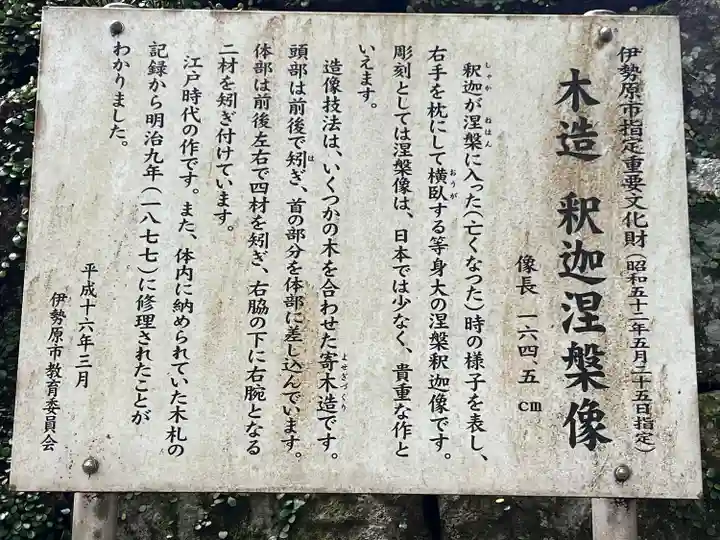 伊勢原市指定重要文化財(昭和五十二年五月二十五日指定)
木造 釈迦涅槃像
像長 一六四.五 cm
釈迦が涅槃に入った(亡くなつた)時の様子を表し、
しゃか ねはん
右手を枕にして横臥する等身大の涅槃釈迦像です。
おうが
彫刻としては涅槃像は、日本では少なく、貴重な作と
いえます。
造像技法は、いくつかの木を合わせた寄木造です。
よせぎづくり
頭部は前後で矧ぎ、首の部分を体部に差し込んでいます。
は
体部は前後左右で四材を矧ぎ、右脇の下に右腕となる
二材を矧ぎ付けています。
江戸時代の作です。また、体内に納められていた木札の
記録から明治九年(一八七七)に修理されたことが
わかりました。
平成十六年三月
伊勢原市教育委員会